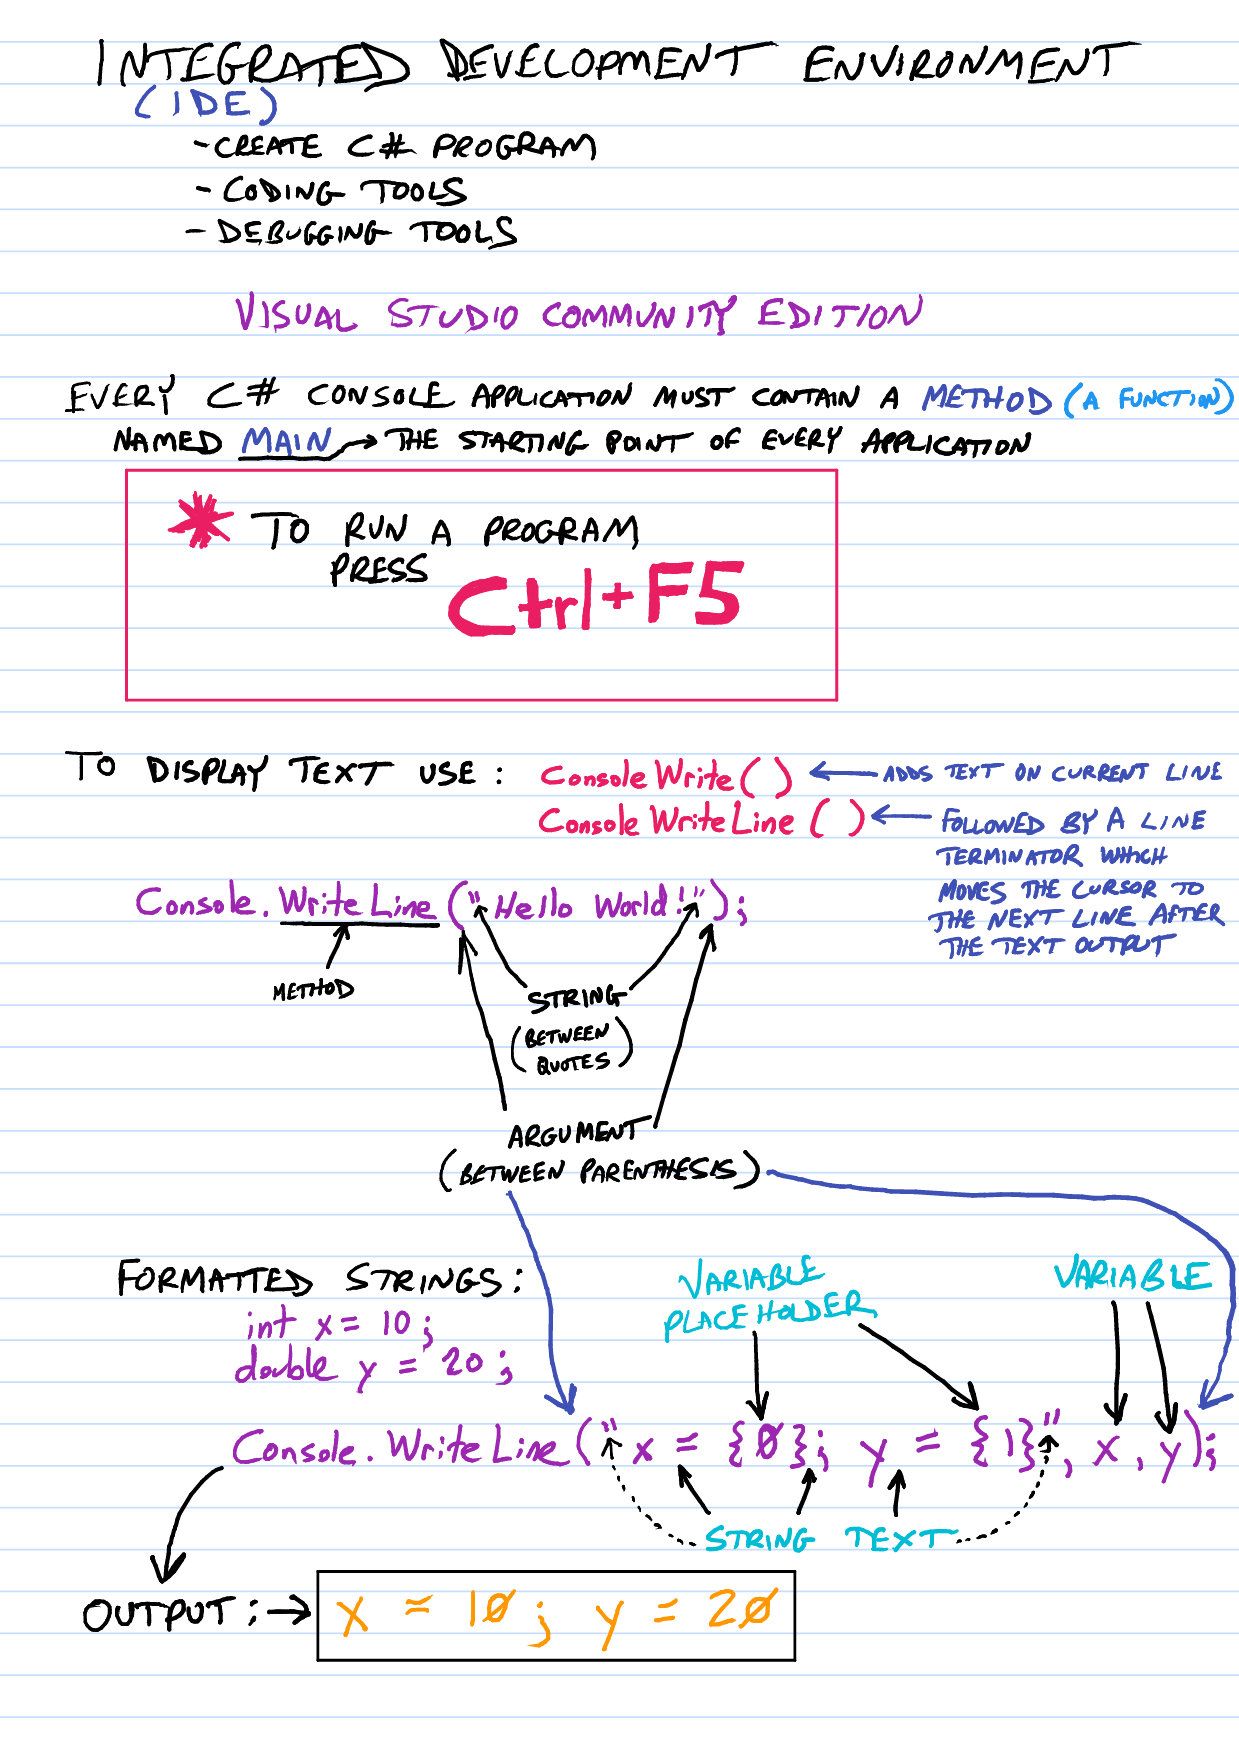 INTEGRATED DEVELOPMENT ENVIRONMENT
(IDE)
- CREATE C# PROGRAM
- CODING TOOLS
- DEBUGGING TOOLS
VISUAL STUDIO COMMUNITY EDITION
EVERY C# CONSOLE APPLICATION MUST CONTAIN A METHOD (A FUNCTION)
NAMED MAIN → THE STARTING POINT OF EVERY APPLICATION
* TO RUN A PROGRAM
PRESS
Ctrl+F5
TO DISPLAY TEXT USE : Console Write ( ) ← ADDS TEXT ON CURRENT LINE
Console WriteLine ( ) ← FOLLOWED BY A LINE
TERMINATOR WHICH
MOVES THE CURSOR TO
THE NEXT LINE AFTER
THE TEXT OUTPUT
Console. WriteLine ("Hello World!");
METHOD
STRING
(BETWEEN
QUOTES)
ARGUMENT
(BETWEEN PARENTHESIS)
FORMATTED STRINGS :
VARIABLE
PLACEHOLDER
VARIABLE
int x = 10 ;
double y = 20 ;
Console. WriteLine (" x = {0}; y = {1}", x, y);
STRING TEXT
OUTPUT : → x = 10 ; y = 20